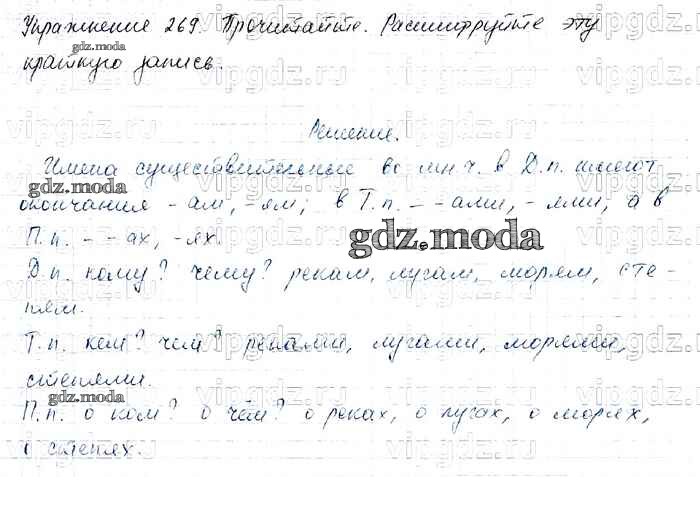 Упражнение 269. Прочитайте. Расшифруйте эту
краткую запись.
Решение.
Имена существительные во мн.ч. в Д.п. имеют
окончания -ам, -ям; в Т.п. - -ами, -ями, а в
П.п. - -ах, -ях.
Д.п. кому? чему? рекам, лугам, морям, сте-
пям.
Т.п. кем? чем? реками, лугами, морями,
степями.
П.п. о ком? о чём? о реках, о лугах, о морях,
о степях.
gdz.moda
gdz.moda
gdz.moda
gdz.moda
vipgdz.ru